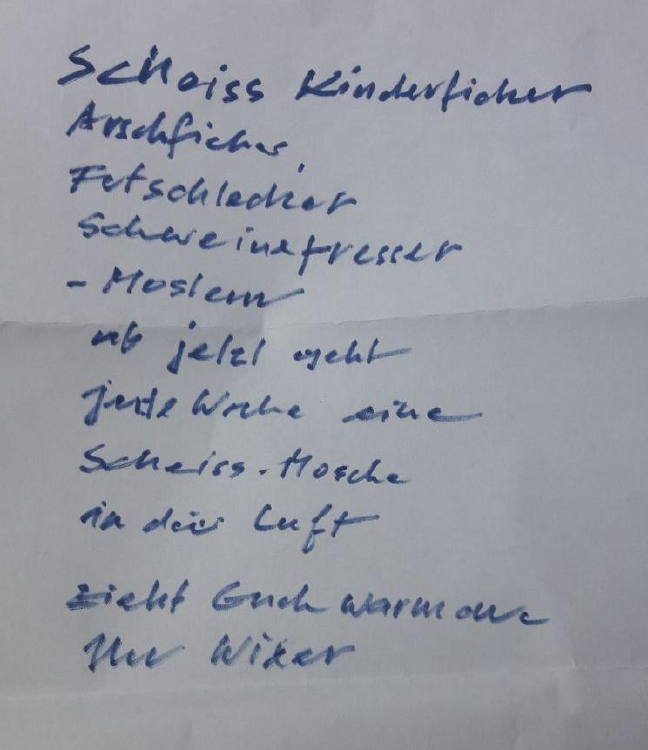 Scheiss Kinderficker
Arschficker,
Fotschlecker
Schweinefresser
- Moslem
ab jetzt geht
jede Woche eine
Scheiss-Mosche
in die Luft
zieht Euch warm an
Ihr Wixer